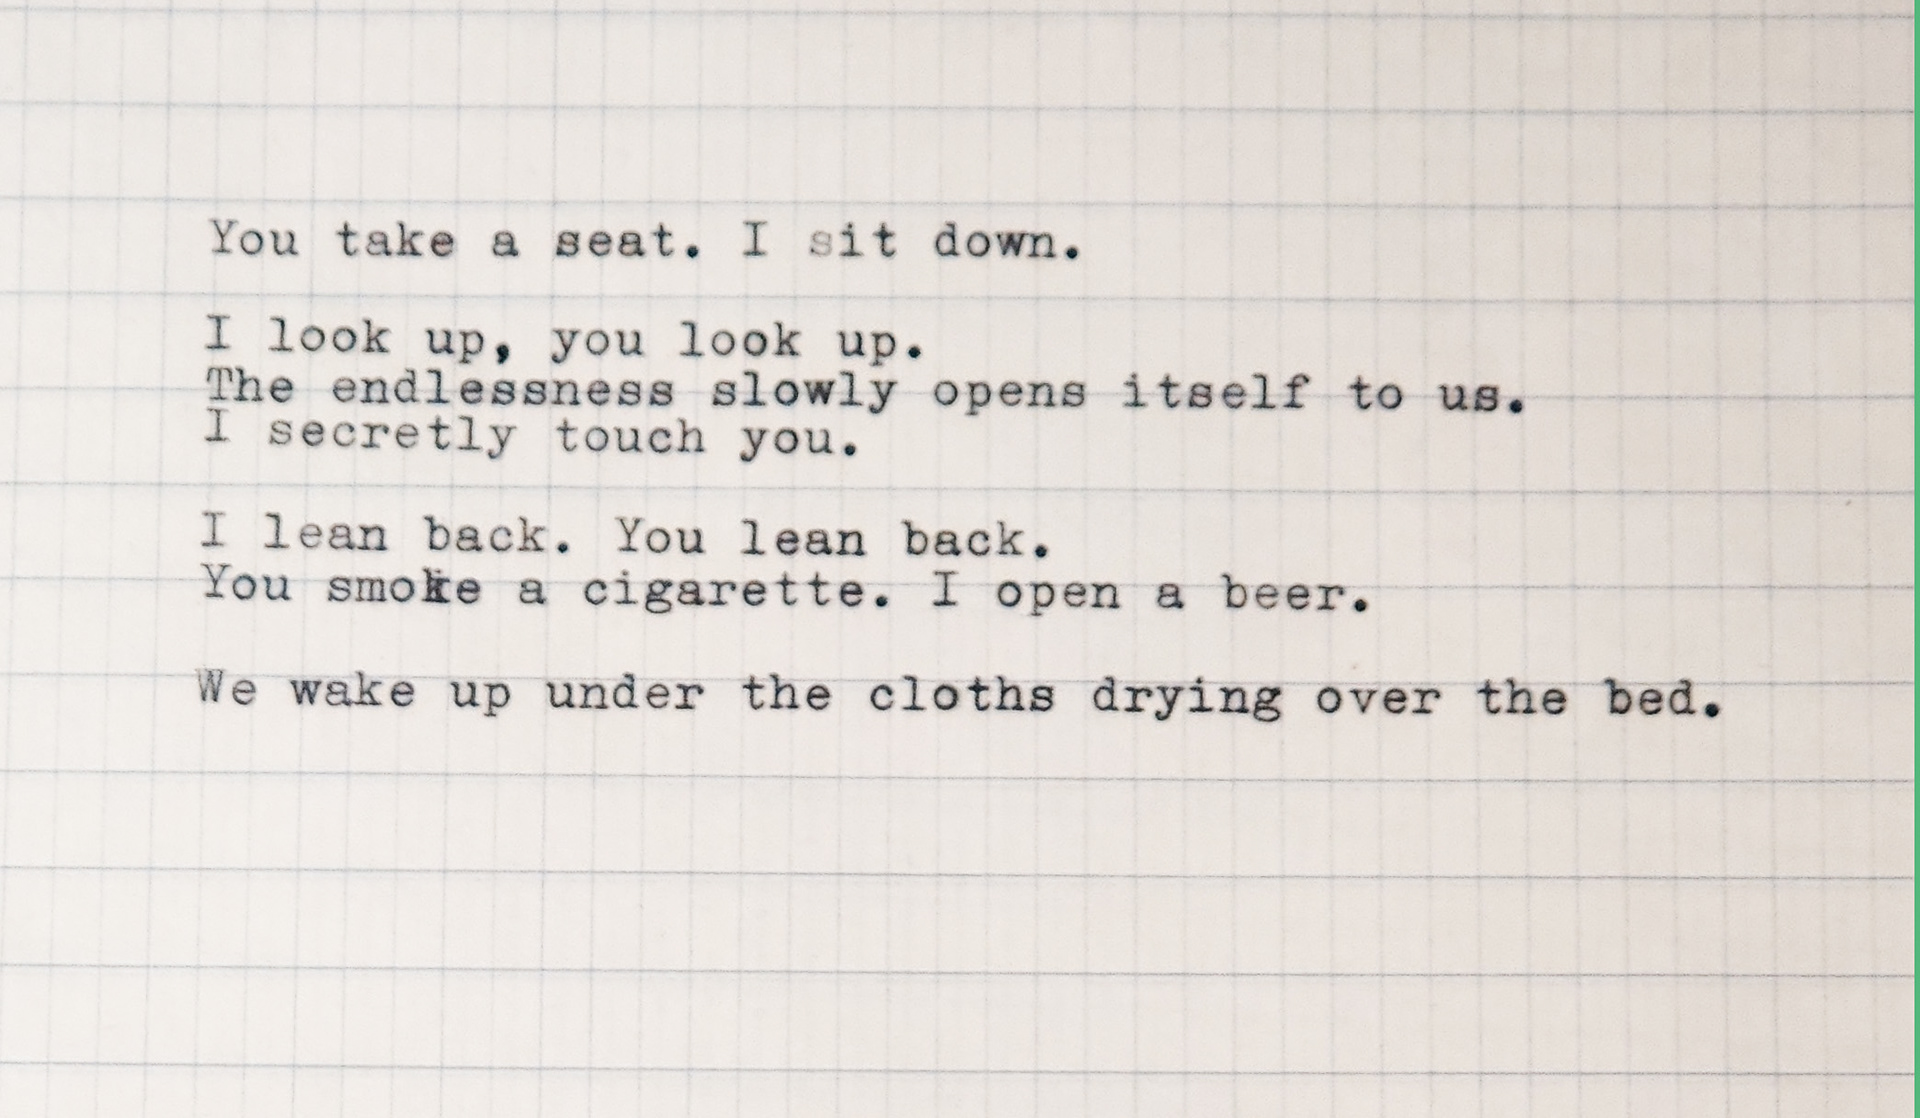 You take a seat. I sit down.
I look up, you look up.
The endlessness slowly opens itself to us.
I secretly touch you.
I lean back. You lean back.
You smoke a cigarette. I open a beer.
We wake up under the cloths drying over the bed.